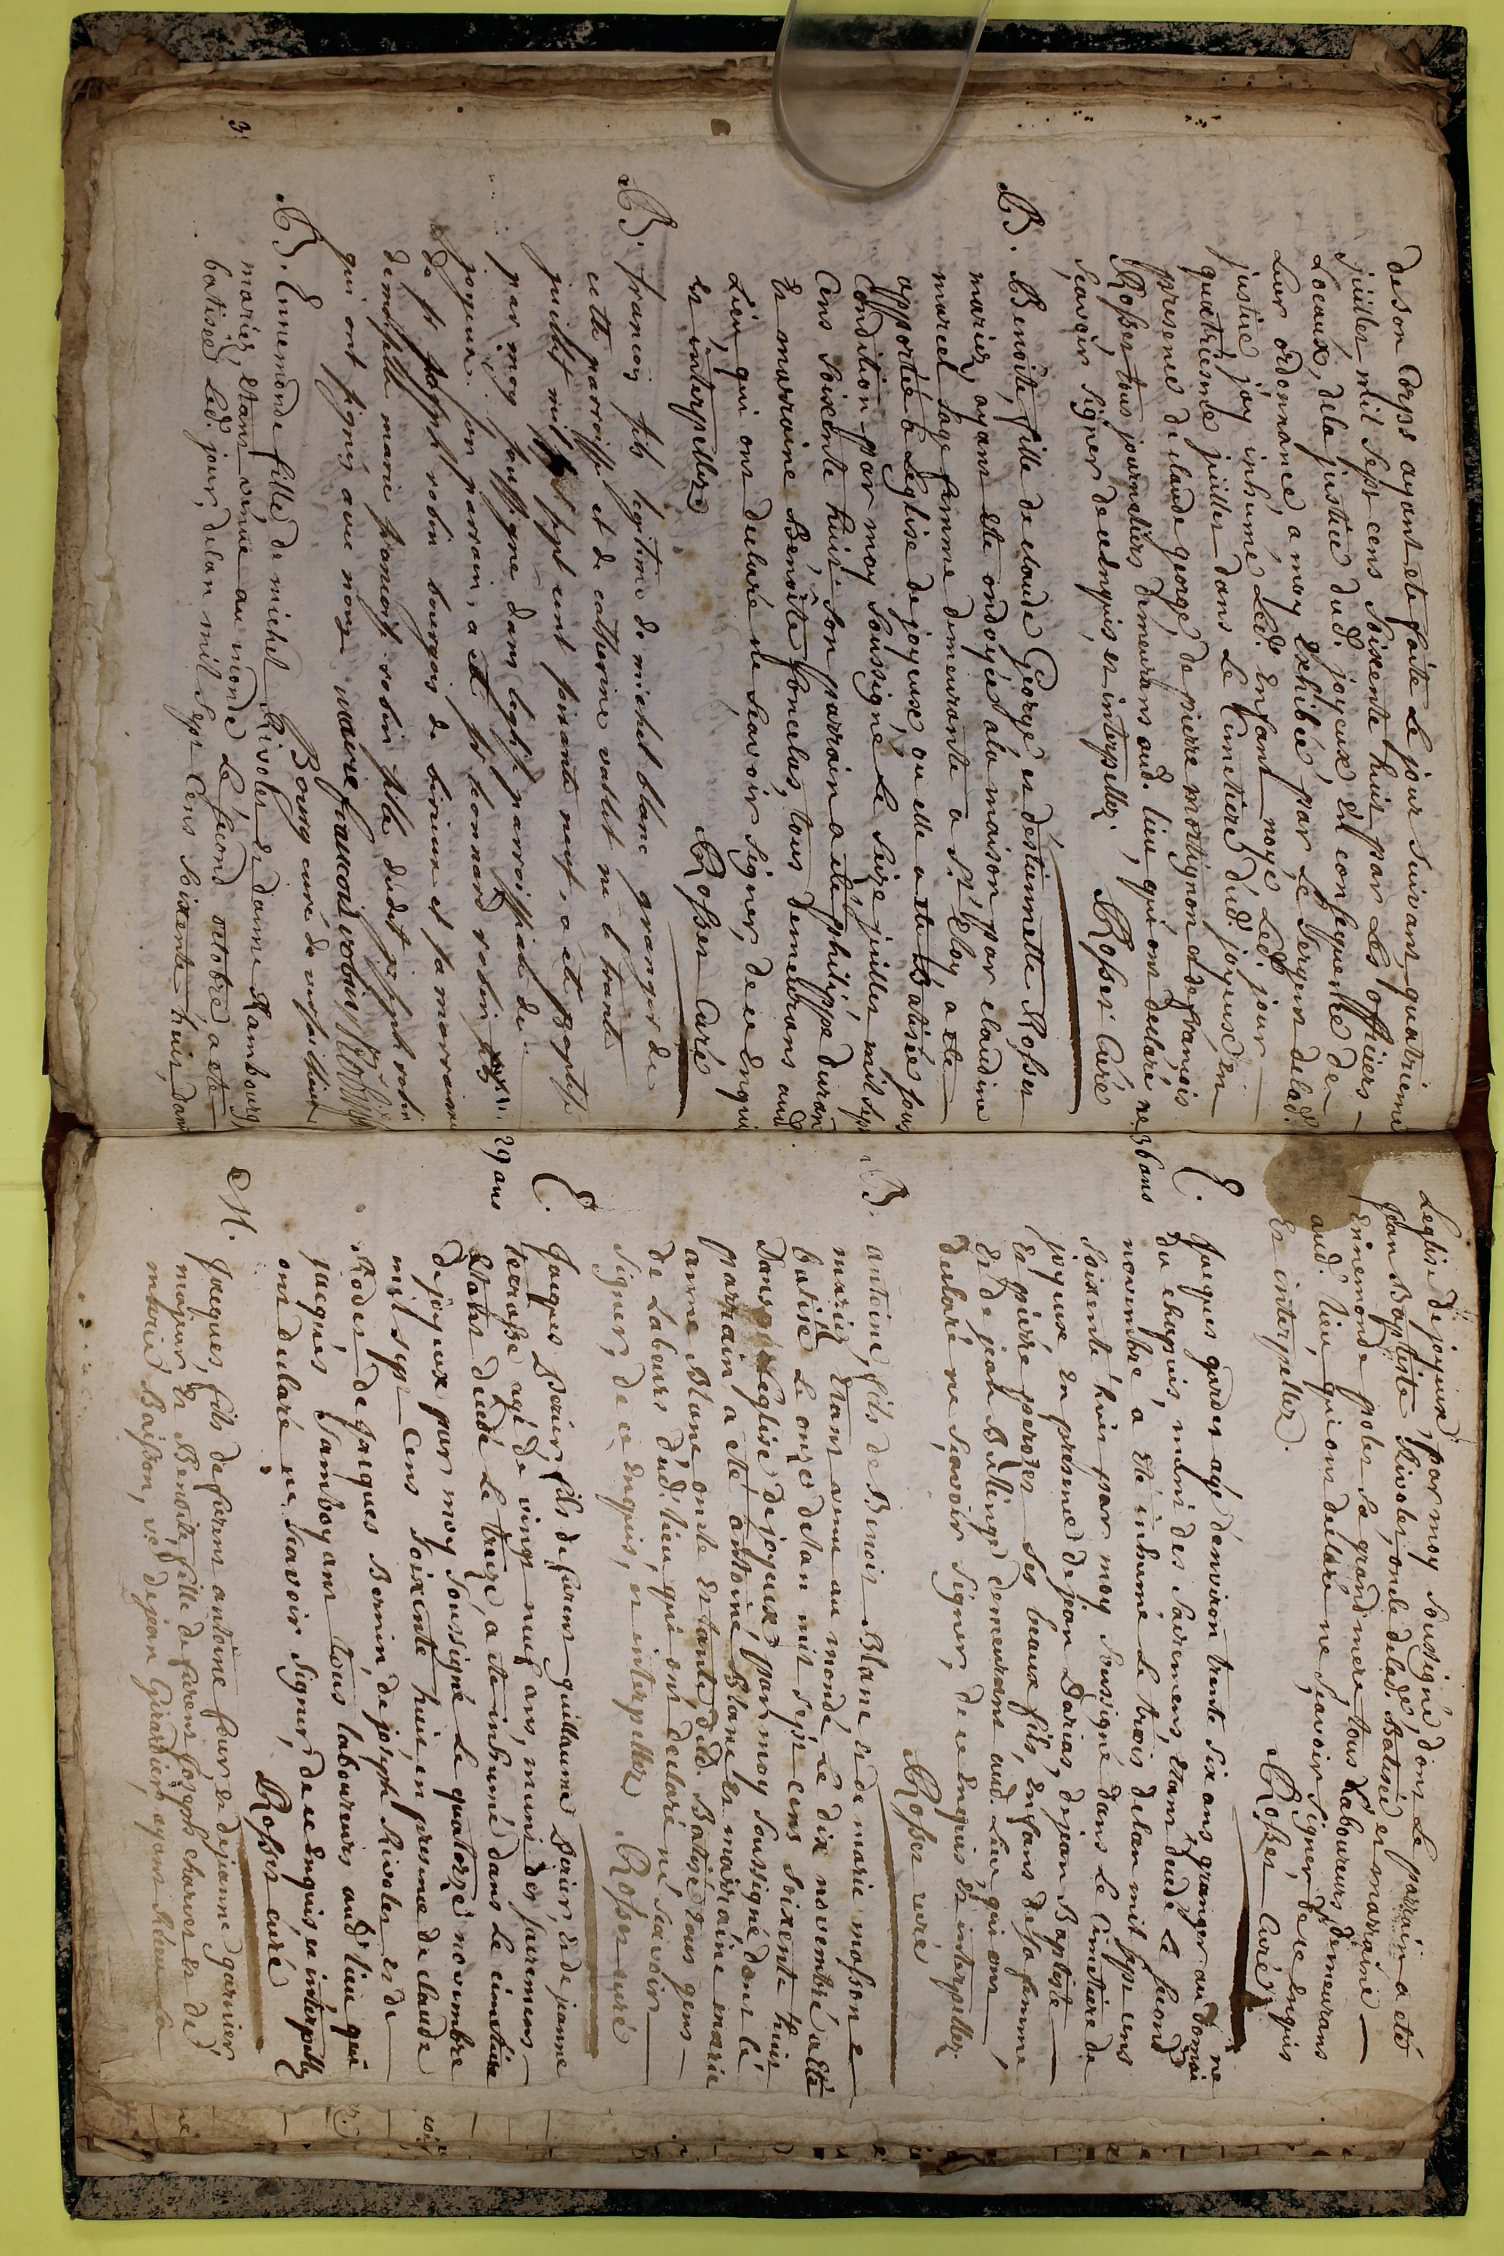 3
de son Corps ayant ete faite Le jour suivant quatrieme
juillet mil sept cens soixente huit par Les officiers
Locaux, de la justice dud. joyeux en consequence de
Leur ordonnance, a moy Exhibée, par Le Sergent delad.
justice, j'ay inhumé Led. Enfant noyé Led. jour
quatriesme juillet dans Le Cimetiere dud. joyeux en
presence de claude george, de pierre Montignon et de francois
Rosset tous journaliers demeurans aud. lieu, qui ont declaré ne
scavoir signer de ce enquis et interpellez. Rosset Curé
B. Benoîte, fille de claude George et d'estiennette Rosset
mariez, ayant ette ondoyée a la maison par claudine
marcel sage femme demeurante a St Eloy, a ete
apportée a L'eglise de joyeux, ou elle a ete Batisée sous
Condition par moy soussigné Le seize juillet mil sept
Cens soixente huit. Son parrain a ete, philippe durand
Et marraine Benoîte poncelas, tous demeurans aud.
Lieu, qui ont declaré ne scavoir signer, de ce Enquis
et interpellez Rosset Curé
B. francois fils legitime de michel blanc granger de
cette parroisse et de catherine vallet ne le trente
juillet mil sept cent soixante neuf, a ete Baptisé
par moy soussigné dans leglise parroissiale de
joyeux. son parrain, a ete sr leonard robin fils
de sr joseph robin bourgois de birieux et sa marraine
demoiselle marie francoise robin fille dudit joseph robin
qui ont signés avec nous marie francoise robin
Bourg curé de versailleux
B. Ennemonde fille de michel Rivolet et d'anne Rambourg,
mariez, etant venue au monde Le second octobre, a ete
batisée Led. jour, de lan mil sept Cens soixente huit, dans
Leglise de joyeux, par moy soussigné, dont Le parrain a eté
jean Baptiste Rivolet, oncle delad. Batisée et marraine
Ennemonde polet sa grand mere, tous Laboureurs, demeurans
aud. lieu, qui ont declaré ne scavoir signer, de ce enquis
Et interpellez. Rosset Curé
E. jacques gardet agé d'environ trente six ans granger au domaine
36 ans
du chapuis, muni des sacremens, etant decedé le second
novembre a eté inhumé Le trois de lan mil sept cens
soixente huit par moy soussigné dans Le Cimetiere de
joyeux, en presence de jean Darias, de jean Baptiste
et pierre perozet ses beaux fils, enfans de sa femme,
et de jean Bullinge demeurant aud. Lieu, qui ont
declaré ne scavoir signer, de ce enquis et interpellez.
Rosset curé
B. antoine, fils de Benoit Blanc et de marie mosson
mariez etant venu au monde, Le dix novembre a eté
batisé Le onze de lan mil sept cens soixente huit
dans Leglise de joyeux par moy soussigné dont le
parrain a eté antoine Blanc et marraine marie
anne Blanc oncle et tante dud. Batisé tous gens
de Labeurs dud. lieu, qui ont declaré ne scavoir
signer, de ce enquis, et interpellez Rosset curé
E. jacques Perier fils de furent guillaume Perier, et de jeanne
29 ans
terrasse agé de vingt neuf ans, muni des sacremens
Etant decedé Le treize, a ete inhumé dans Le cimetiere
de joyeux par moy soussigné Le quatorze novembre
mil sept cens soixente huit, en presence de claude
Rodet de jacques Bernin, de joseph Rivolet et de
jacques Jamboyant tous laboureurs aud. lieu qui
ont declaré ne scavoir signer, de ce enquis et interpellez
Rosset curé
M. jacques, fils de furent antoine four et de jeanne garnier
majeur, et Benoite, fille de furent joseph charvet et de
marie Baisson, ve de jean Girardier, ayant Recu la